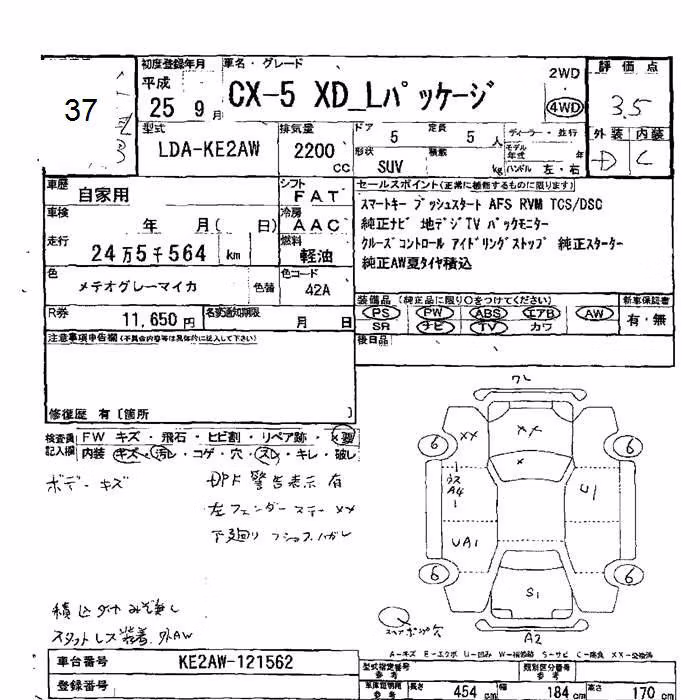 初度登録年月 車名・グレード 2WD 評価点
平成 25 9月 CX-5 XD_Lパッケージ 4WD 3.5
37
型式 排気量 ドア 5 定員 5人 ディーラー・並行 外装 内装
LDA-KE2AW 2200CC 形状 SUV 積載 kg モデル年式 年 ハンドル 左・右 D C
車歴 自家用 シフト FAT セールスポイント(正常に機能するものに限ります)
車検 年 月( 日) 冷房 AAC スマートキー プッシュスタート AFS RVM TCS/DSC
走行 24万5千564 km 燃料 軽油 純正ナビ 地デジTV バックモニター
クルーズコントロール アイドリングストップ 純正スターター
純正AW夏タイヤ積込
色 メテオグレーマイカ 色替 色コード 42A
装備品(純正品に限り○をつけてください) 新車保証書
R券 11,650円 名変通知期限 月 日 PS PW ABS エアB AW 有・無
SR ナビ TV カワ
注意事項申告欄(不具合内容等は具体的に記入して下さい) 後日品
修復歴 有〔箇所 〕
検査員記入欄 FW キズ・飛石・ヒビ割・リペア跡・×要
内装 キズ・汚レ・コゲ・穴・スレ・キレ・破レ
ボデーキズ DPF警告表示有
左フェンダーステー XX
下廻り
ワレ
XX XX
6 6
X
A4 U1
UA1
6 6
S1
A2
積込タイヤみぞ無し
スタットレス装着 外AW
スペアボジ穴
A-キズ E-エクボ U-凹み W-補修跡 S-サビ C-腐食 XX-交換済
車台番号 KE2AW-121562 型式指定番号 参考 類別区分番号 参考
登録番号 車庫証明用 参考 長さ 454 cm 幅 184 cm 高さ 170 cm